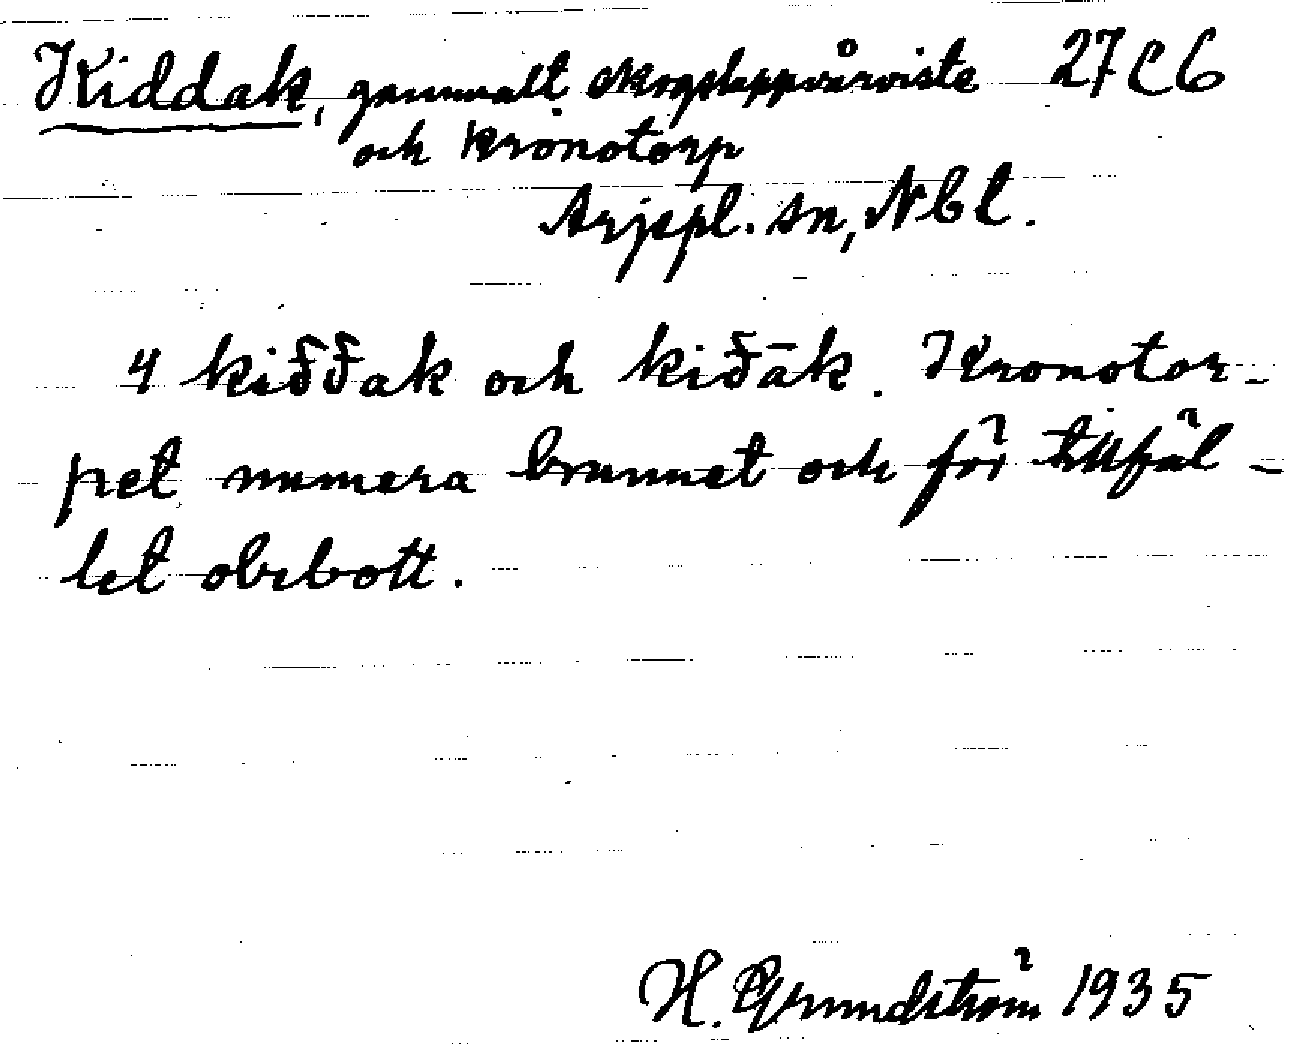 Kiddak, gammalt skogslappvårviste 27 C 6
och kronotorp
Arjepl. sn, Nbl.
4 kiđđak och kiđāk. Kronotor-
pet numera brunnet och för tillfäl-
let obebott.
H. Grundström 1935